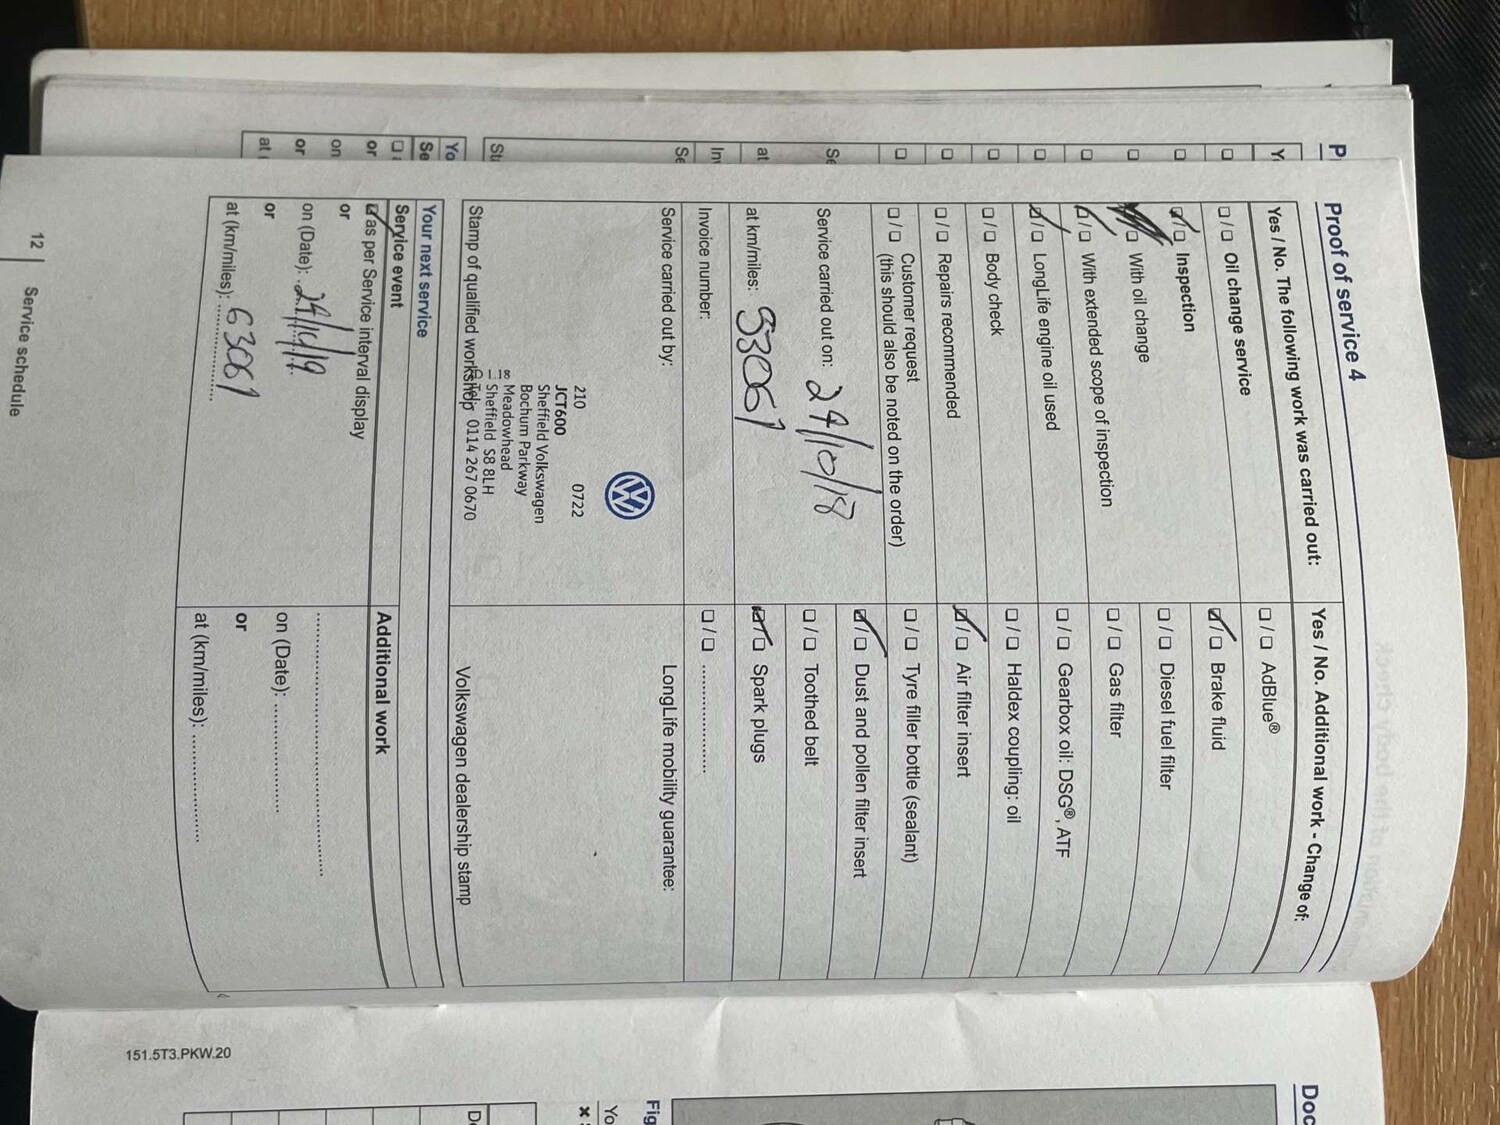 Proof of service 4
Yes / No. The following work was carried out:
☐ / ☐ Oil change service
☑ / ☐ Inspection
☐ With oil change
☑ / ☐ With extended scope of inspection
☑ / ☐ LongLife engine oil used
☐ / ☐ Body check
☐ / ☐ Repairs recommended
☐ / ☐ Customer request
(this should also be noted on the order)
Service carried out on: 24/10/18
at km/miles: 53061
Invoice number:
Service carried out by:
210 0722
JCT600
Sheffield Volkswagen
Bochum Parkway
Meadowhead
Sheffield S8 8LH
Tel: 0114 267 0670
Stamp of qualified workshop
Yes / No. Additional work - Change of:
☐ / ☐ AdBlue®
☑ / ☐ Brake fluid
☐ / ☐ Diesel fuel filter
☐ / ☐ Gas filter
☐ / ☐ Gearbox oil: DSG®, ATF
☐ / ☐ Haldex coupling: oil
☑ / ☐ Air filter insert
☐ / ☐ Tyre filler bottle (sealant)
☑ / ☐ Dust and pollen filter insert
☐ / ☐ Toothed belt
☑ / ☐ Spark plugs
☐ / ☐ ....................
LongLife mobility guarantee:
Volkswagen dealership stamp
Your next service
Service event
☑ as per Service interval display
or
on (Date): 24/10/19
or
at (km/miles): 63061
Additional work
on (Date): ....................
or
at (km/miles): ....................
12 | Service schedule
151.5T3.PKW.20
Doc
Fig
Yo